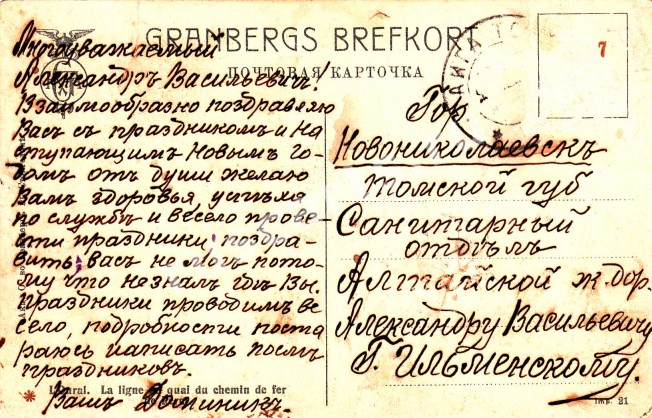 GRANBERGS BREFKORT
ПОЧТОВАЯ КАРТОЧКА
7
Многоуважаемый
Александръ Васильевичъ!
Взаимообразно поздравляю
Васъ съ праздникомъ и на
ступающимъ Новымъ го-
домъ отъ души желаю
Вамъ здоровья, успѣха
по службѣ и весело прове-
сти праздники, поздра-
вить васъ не могъ пото-
му что не зналъ гдѣ Вы.
Праздники проводимъ ве
село, подробности поста
раюсь написать послѣ
праздниковъ.
Вашъ Доминикъ.
Гор.
Новониколаевскъ
Томской губ
Санитарный
отдѣлъ
Алтайской ж. дор.
Александру Васильевичу
Г. Ильменскому.
La ligne quai du chemin de fer
Imp. 21